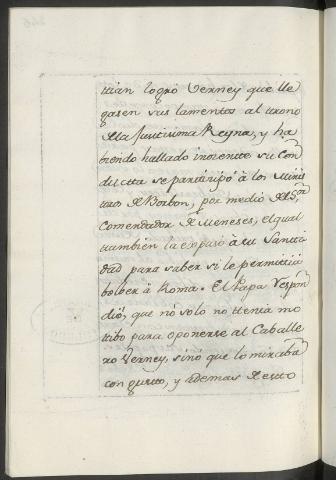 tian logrò Verney que lle
gasen sus lamentos al trono
de la Justissima Reyna, y ha
biendo hallado inocente su Con
ducta se participò à los Minis
tros de Borbon, por medio del Sor
Comendador de Meneses, el qual
tambien la expuso à su Santi
dad para saber si le permitia
bolber à Roma. El Papa respon
diò, que no solo no tenia mo
tibo para oponerse al Caballe
ro Verney, sinò que lo miraba
con gusto, y ademas de esto